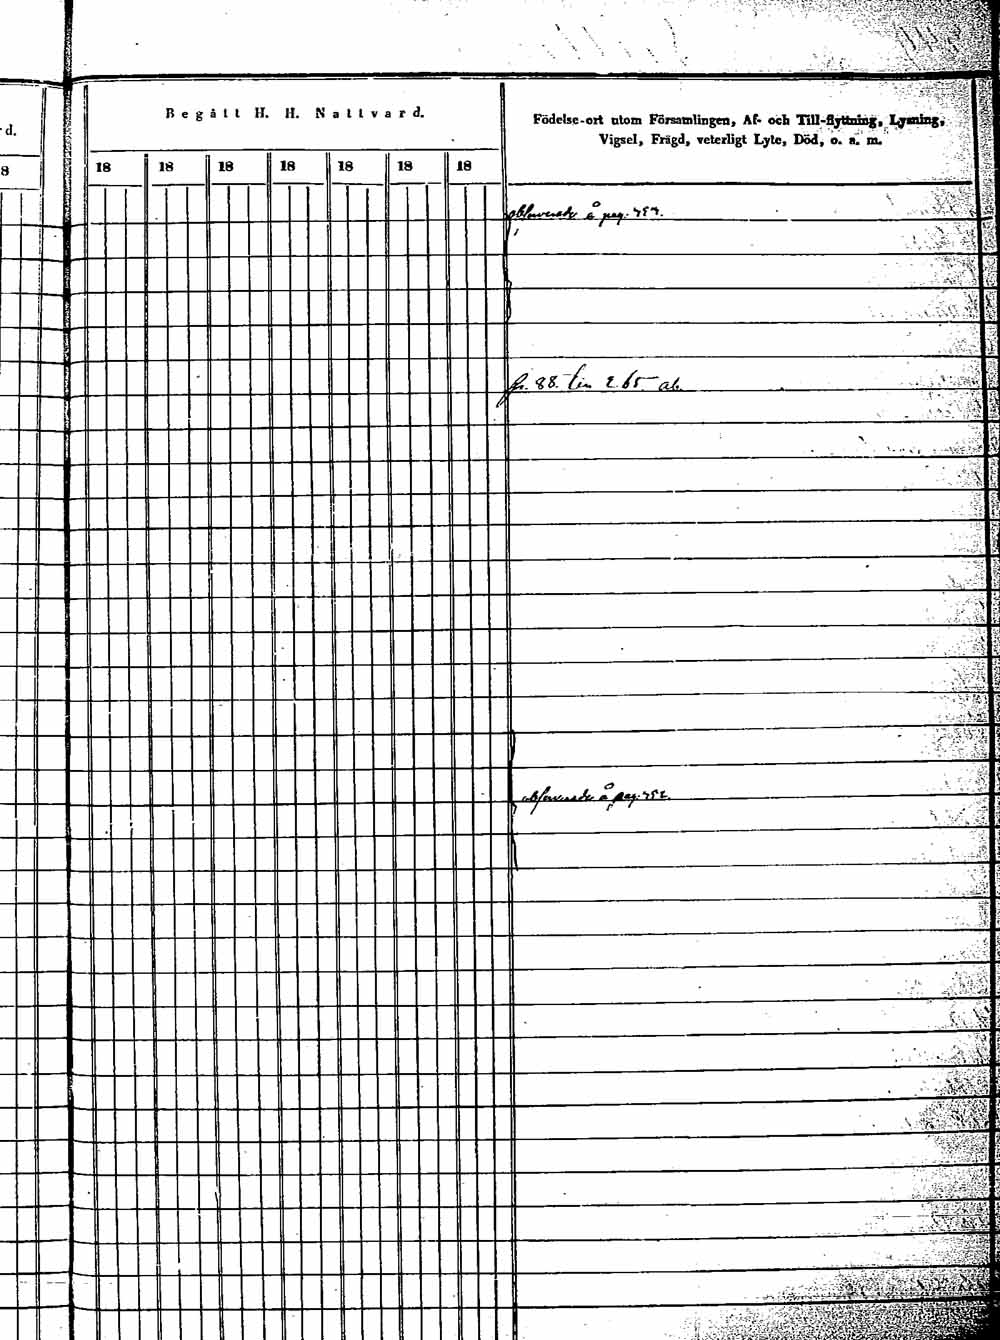 d.
8
Begått H. H. Nattvard.
18 18 18 18 18 18 18
Födelse-ort utom Församlingen, Af- och Till-flyttning, Lysning,
Vigsel, Frägd, veterligt Lyte, Död, o. s. m.
observerade å pag.
fr. 88. 65
observerade å pag.